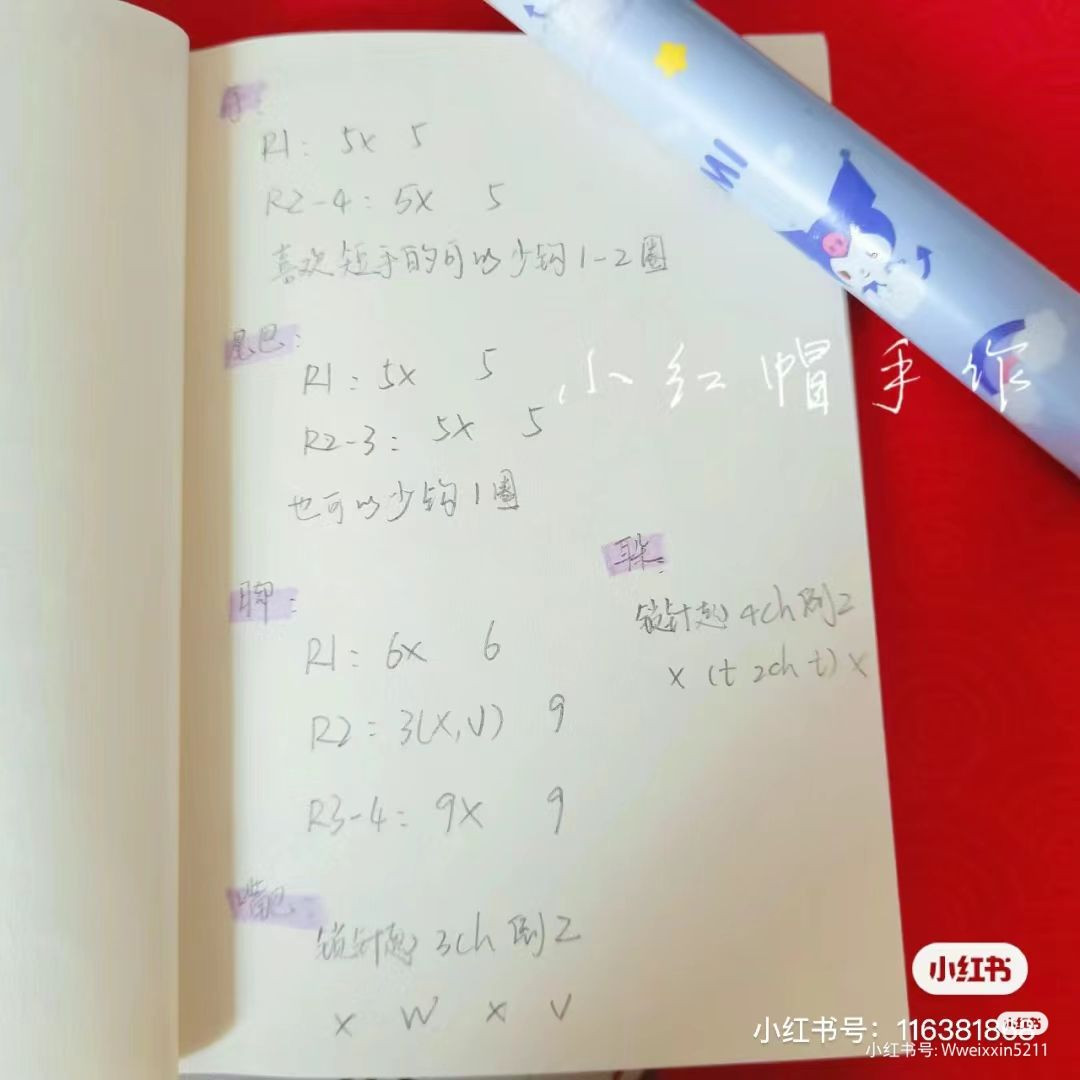 手:
R1: 5X 5
R2-4: 5X 5
喜欢短手的可以少钩1-2圈
尾巴:
R1: 5X 5
R2-3: 5X 5
也可以少钩1圈
R1: 6X 6
R2: 3(X,V) 9
R3-4: 9X 9
嘴巴:
锁针起 3ch 倒2
X W X V
耳朵:
锁针起 4ch 倒2
X (t 2ch t) X
小红帽手作
小红书
小红书号:
小红书号: Wweixxin5211